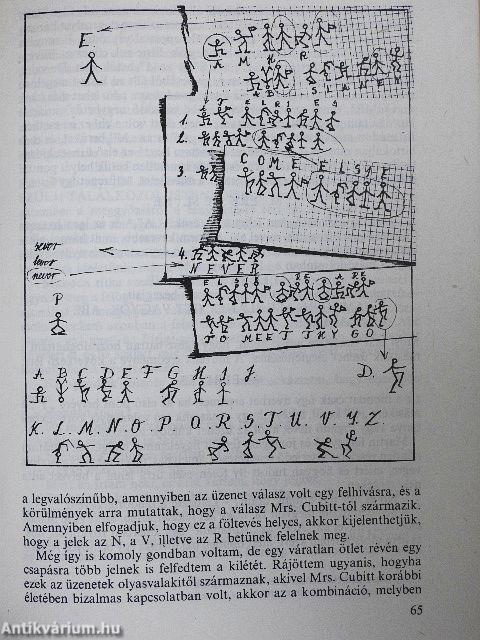 E.
A M H R
A B S L A N E Y
1.
2.
3.
C O M E E L S I E
sever
lever
never
4.
N E V E R
P
E L S I E P R E P A R E
T O M E E T T H Y G O
D.
A. B C D E F G H I J
K. L. M. N. O. P. Q. R. S. T. U. V. Y. Z.
a legvalószínűbb, amennyiben az üzenet válasz volt egy felhívásra, és a
körülmények arra mutattak, hogy a válasz Mrs. Cubitt-tól származik.
Amennyiben elfogadjuk, hogy ez a föltevés helyes, akkor kijelenthetjük,
hogy a jelek az N, a V, illetve az R betűnek felelnek meg.
Még így is komoly gondban voltam, de egy váratlan ötlet révén egy
csapásra több jelnek is felfedtem a kilétét. Rájöttem ugyanis, hogyha
ezek az üzenetek olyasvalakitől származnak, akivel Mrs. Cubitt korábbi
életében bizalmas kapcsolatban volt, akkor az a kombináció, melyben
65
Antikvárium.hu